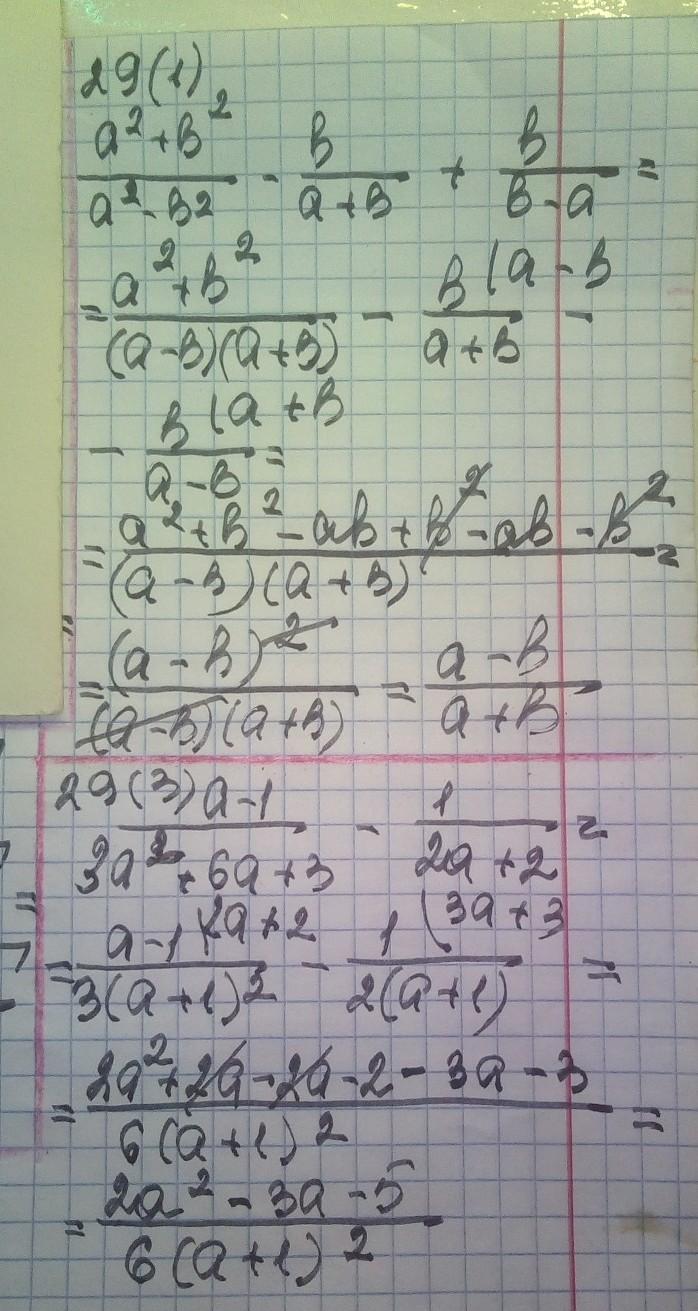 29(1)
(a² + b²)/(a² - b²) - b/(a + b) + b/(b - a) =
= (a² + b²)/((a - b)(a + b)) - b(a - b/(a + b) -
- b(a + b/(a - b) =
= (a² + b² - ab + b² - ab - b²)/((a - b)(a + b)) =
= (a - b)²/((a - b)(a + b)) = (a - b)/(a + b)
29(3) (a - 1)/(3a² + 6a + 3) - 1/(2a + 2) =
= (a - 1(2a + 2)/(3(a + 1)²) - 1(3a + 3/(2(a + 1)) =
= (2a² + 2a - 2a - 2 - 3a - 3)/(6(a + 1)²) =
= (2a² - 3a - 5)/(6(a + 1)²)